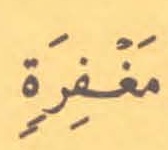 مَغْفِرَةٍ